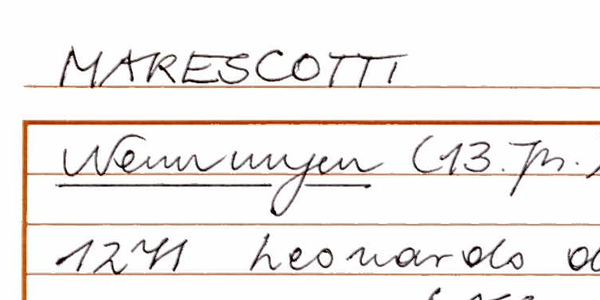 MARESCOTTI
Nennungen (13. Jh.)
1271 Leonardo